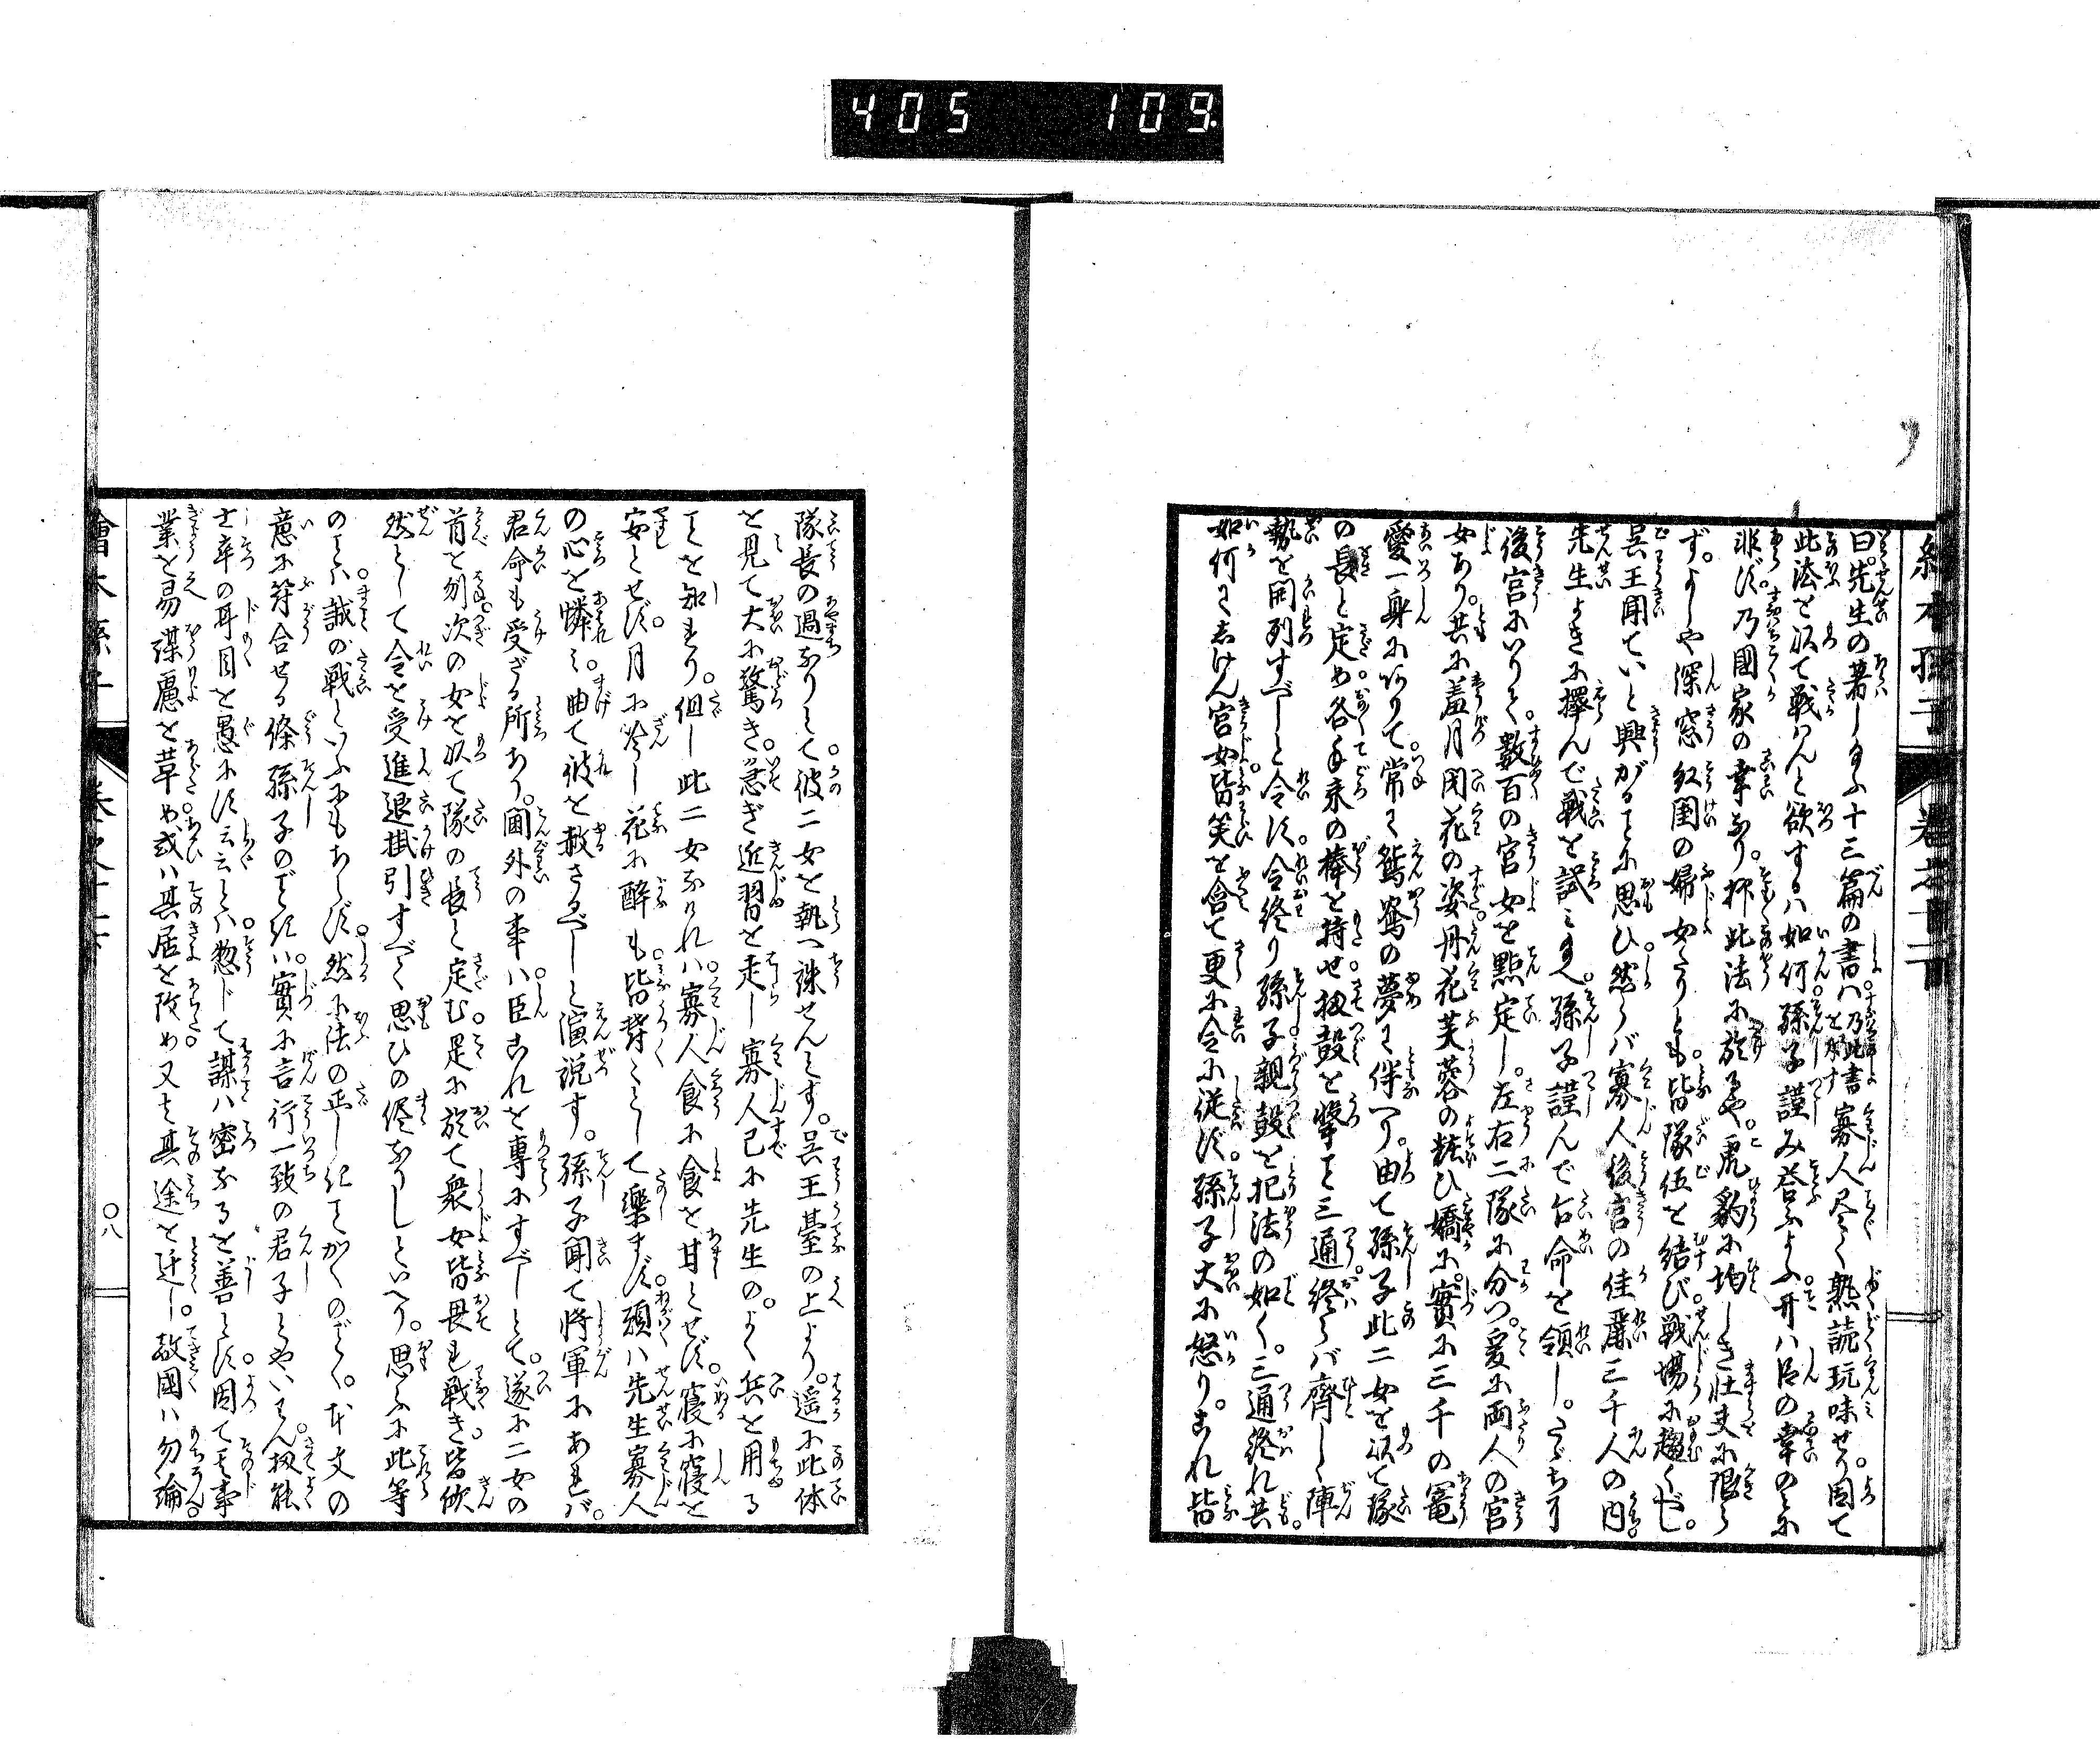 405 109.
繪本孫子 卷之
曰。先生の著し給ふ十三篇の書ハ乃此書を求す寡人尽く熟読玩味せり。因て
此法を以て戦ハんと欲するハ如何。孫子謹み答ふよふ。其ハ臣の幸のミに
非ず。乃國家の幸なり。抑此法に於るや。虎豹に均しき壮夫に限ら
ず。よしや深窓紅閨の婦女たりとも。皆隊伍を結び。戦場に趣くべし。
呉王聞ていと興がることに思ひ。然らバ寡人後宮の佳麗三千人の内。
先生よきに擇んで戦を試ミ見よ。孫子謹んで台命を領し。たゞちに
後宮にいりて。数百の官女を點定し。左右二隊に分つ。爰に両人の官
女あり。共に羞月閉花の姿。丹花芙蓉の粧ひ嬌に。實に三千の寵
愛一身にありて。常に鴛鴦の夢に伴へり。由て孫子此二女を以て隊
の長と定め。各手来の棒を持せ。扨鼓を撃こと三通終らバ齊しく陣
勢を開列すべしと令す。令終り孫子親鼓を把法の如く。三通終れ共。
如何にしけん官女皆笑を含て更に令に従ず。孫子大に怒り。これ皆
隊長の過なりとて。彼二女を執へ誅せんとす。呉王臺の上より。遥に此体
を見て大に驚き。急ぎ近習を走し。寡人已に先生の。よく兵を用る
ことを知れり。但し此二女なけれハ。寡人食に食を甘とせず。寝に寝を
安とせず。月に吟し花に酔も皆聲々として樂まず。願ハ先生寡人
の心を憐ミ。曲て彼を赦さるべしと演説す。孫子聞て将軍にあれバ。
君命も受ざる所あり。閫外の事ハ。臣これを専にすべしとて。遂に二女の
首を刎次の女を以て隊の長と定む。是に於て衆女皆畏れ戦き。皆欣
然として令を受進退掛引すべて思ひの侭なりしといへり。思ふに此等
のことハ。誠の戦といふにもあらず。然に法の正しきことかくのごとく。本文の
意に符合せる條孫子のごときハ。實に言行一致の君子とやいはん。扨能
士卒の耳目を愚にす云云とハ。惣じて謀ハ密なるを善とす。因て其事
業を易謀慮を革め。或ハ其居を改め又は其途を迂し。敵國ハ勿論。
繪本孫子 卷之十下 〇八